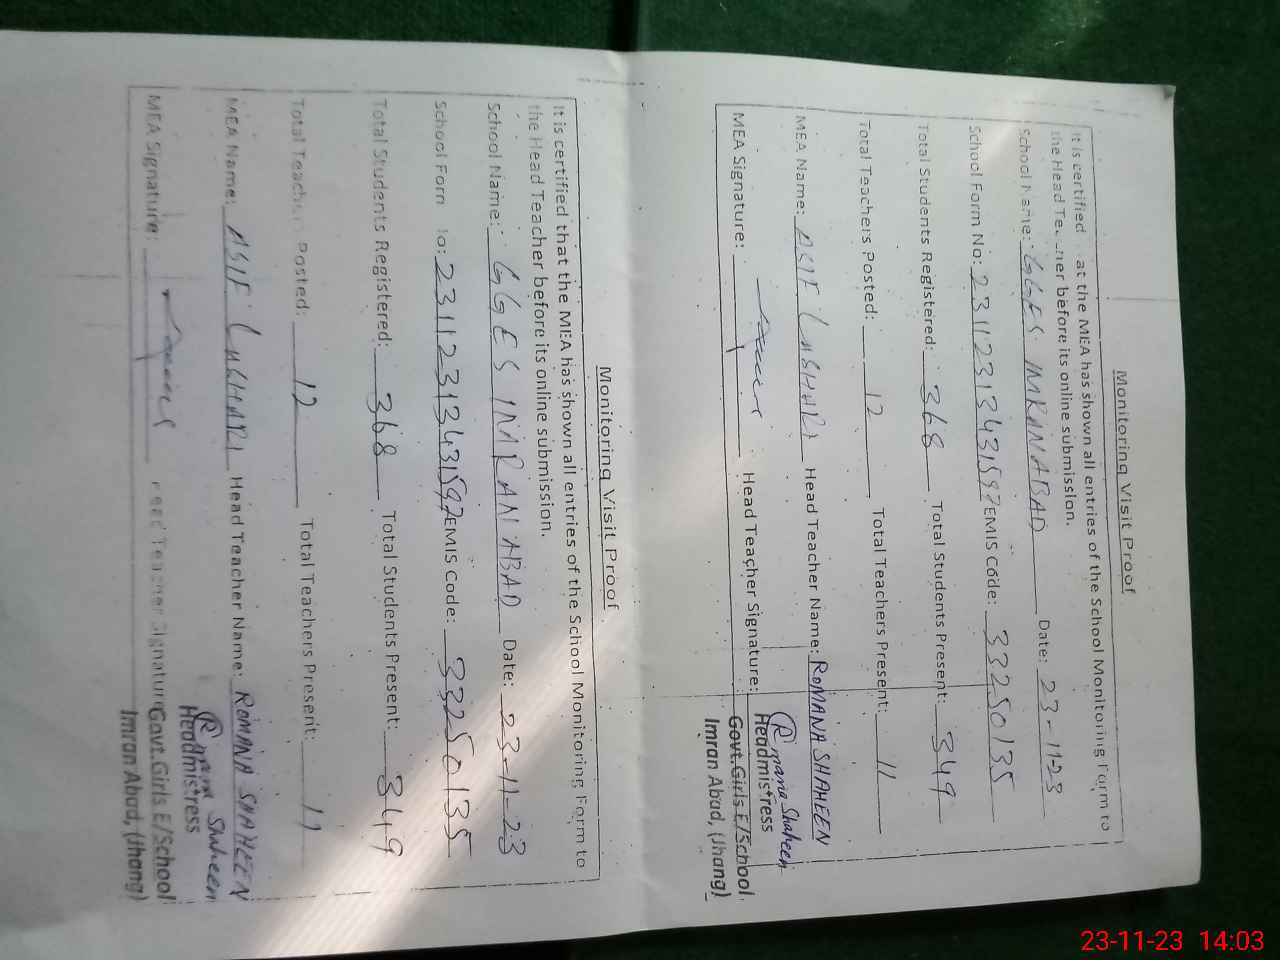 Monitoring Visit Proof
It is certified at the MEA has shown all entries of the School Monitoring Form to
the Head Te ner before its online submission.
School Name: GGES IMRANABAD Date: 23-11-23
School Form No: 23112313431597 EMIS Code: 33250135
Total Students Registered: 368 Total Students Present: 349
Total Teachers Posted: 12 Total Teachers Present: 11
MEA Name: ASIF LASHARI Head Teacher Name: ROMANA SHAHEEN
MEA Signature: Head Teacher Signature: Romana Shaheen
Headmistress
Govt.Girls E/School
Imran Abad, (Jhang)
Monitoring Visit Proof
It is certified that the MEA has shown all entries of the School Monitoring Form to
the Head Teacher before its online submission.
School Name: GGES IMRANABAD Date: 23-11-23
School Form No: 23112313431597 EMIS Code: 33250135
Total Students Registered: 368 Total Students Present: 349
Total Teachers Posted: 12 Total Teachers Present: 11
MEA Name: ASIF LASHARI Head Teacher Name: ROMANA SHAHEEN
MEA Signature: Head Teacher Signature Romana Shaheen
Headmistress
Govt.Girls E/School
Imran Abad, (Jhang)
23-11-23 14:03